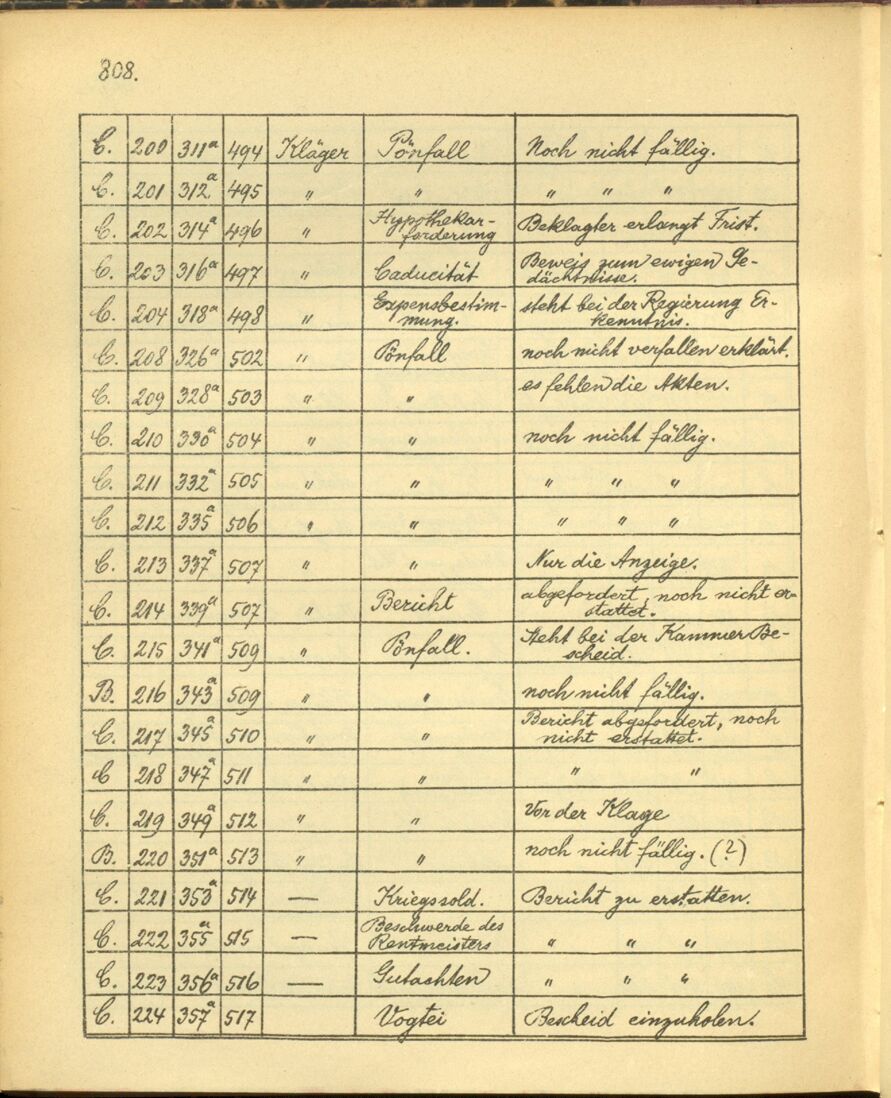 308.
C. 200 311a 494 Kläger Pönfall Noch nicht fällig.
C. 201 312a 495 " " " " "
C. 202 314a 496 " Hypothekar-
forderung Beklagter erlangt Frist.
C. 203 316a 497 " Caducität Beweis zum ewigen Ge-
dächtnisse.
C. 204 318a 498 " Expensbestim-
mung. steht bei der Regierung Er-
kenntnis.
C. 208 326a 502 " Pönfall noch nicht verfallen erklärt.
C. 209 328a 503 " " es fehlen die Akten.
C. 210 330a 504 " " noch nicht fällig.
C. 211 332a 505 " " " " "
C. 212 335a 506 " " " " "
C. 213 337a 507 " " Nur die Anzeige.
C. 214 339a 507 " Bericht abgefordert, noch nicht er-
stattet.
C. 215 341a 509 " Pönfall. Steht bei der Kammer Be-
scheid.
B. 216 343a 509 " " noch nicht fällig.
C. 217 345a 510 " " Bericht abgefordert, noch
nicht erstattet.
C 218 347a 511 " " " "
C. 219 349a 512 " " Vor der Klage
B. 220 351a 513 " " noch nicht fällig. (?)
C. 221 353a 514 — Kriegssold. Bericht zu erstatten.
C. 222 355a 515 — Beschwerde des
Rentmeisters " " "
C. 223 356a 516 — Gutachten " " "
C. 224 357a 517 Vogtei Bescheid einzuholen.